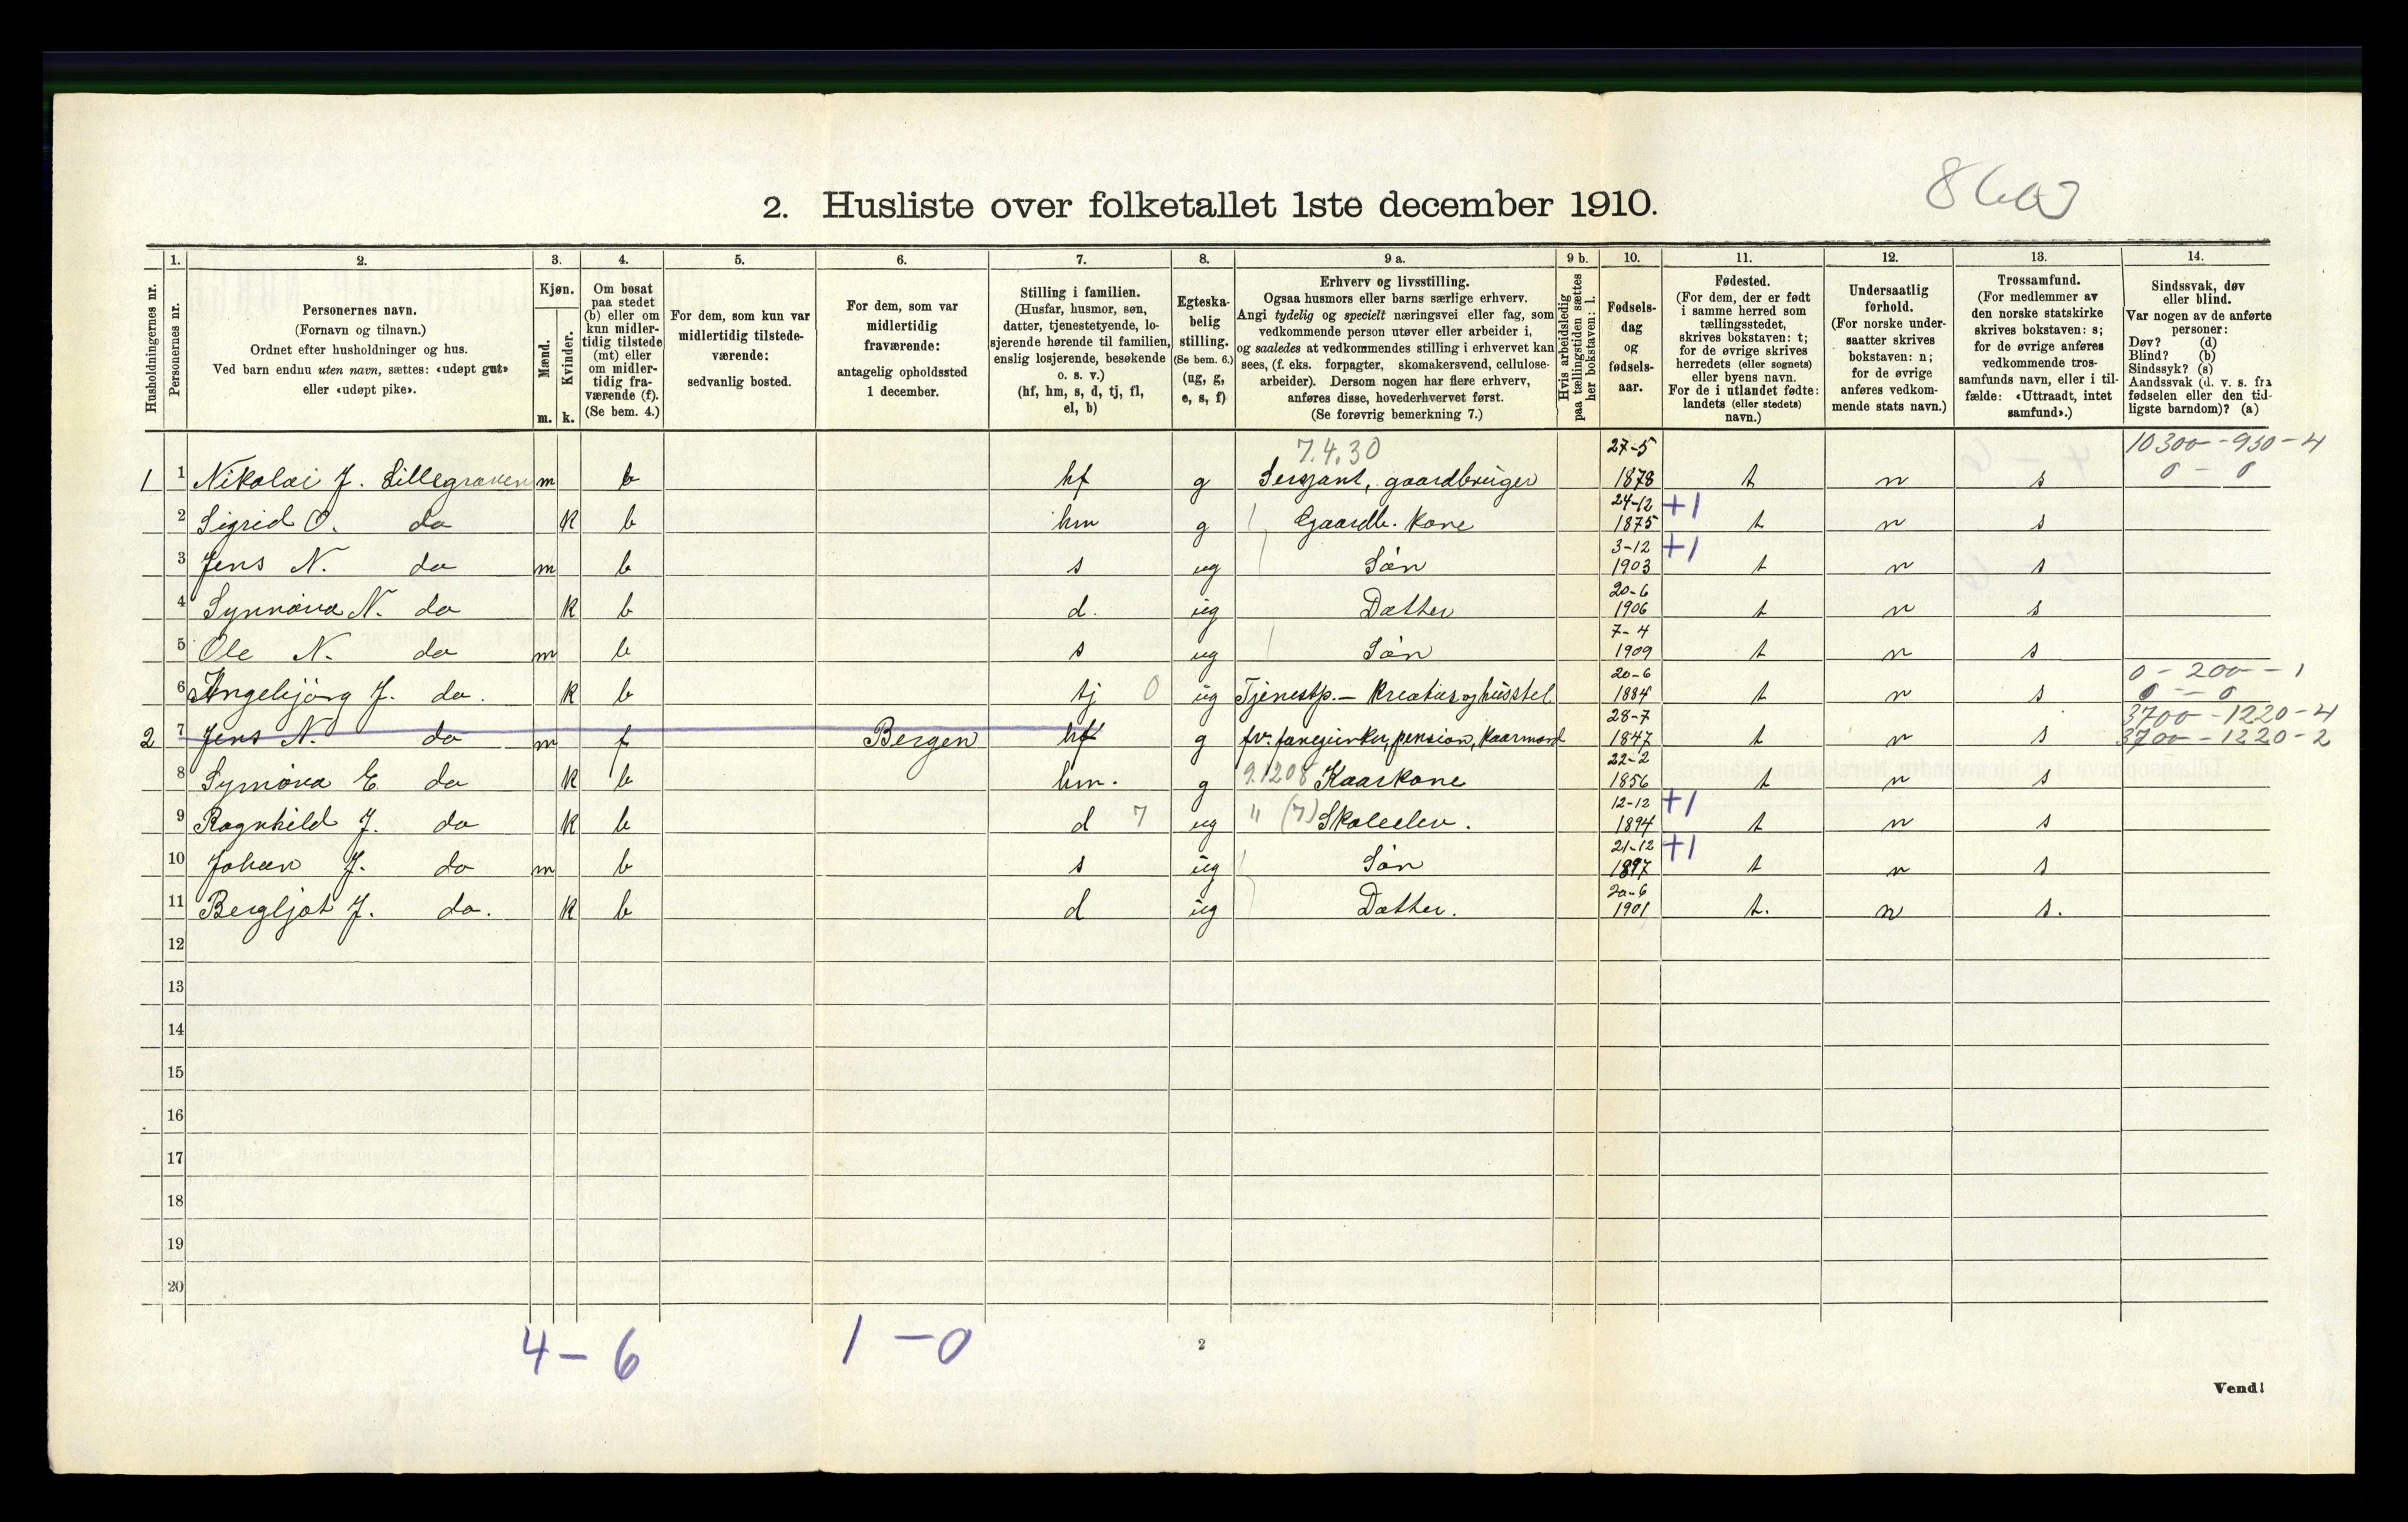 8603
2. Husliste over folketallet 1ste december 1910.
Husholdningernes nr.
1. Personernes nr.
2. Personernes navn.
(Fornavn og tilnavn.)
Ordnet efter husholdninger og hus.
Ved barn endnu uten navn, sættes: «udøpt gut»
eller «udøpt pike».
3. Kjøn.
Mænd. m.
Kvinder. k.
4. Om bosat
paa stedet
(b) eller om
kun midler-
tidig tilstede
(mt) eller
om midler-
tidig fra-
værende (f).
(Se bem. 4.)
5. For dem, som kun var
midlertidig tilstede-
værende:
sedvanlig bosted.
6. For dem, som var
midlertidig
fraværende:
antagelig opholdssted
1 december.
7. Stilling i familien.
(Husfar, husmor, søn,
datter, tjenestetyende, lo-
sjerende hørende til familien,
enslig losjerende, besøkende
o. s. v.)
(hf, hm, s, d, tj, fl,
el, b)
8. Egteska-
belig
stilling.
(Se bem. 6.)
(ug, g,
e, s, f)
9 a. Erhverv og livsstilling.
Ogsaa husmors eller barns særlige erhverv.
Angi tydelig og specielt næringsvei eller fag, som
vedkommende person utøver eller arbeider i,
og saaledes at vedkommendes stilling i erhvervet kan
sees, (f. eks. forpagter, skomakersvend, cellulose-
arbeider). Dersom nogen har flere erhverv,
anføres disse, hovederhvervet først.
(Se forøvrig bemerkning 7.)
9 b. Hvis arbeidsledig
paa tællingstiden sættes
her bokstaven: l.
10. Fødsels-
dag
og
fødsels-
aar.
11. Fødested.
(For dem, der er født
i samme herred som
tællingsstedet,
skrives bokstaven: t;
for de øvrige skrives
herredets (eller sognets)
eller byens navn.
For de i utlandet fødte:
landets (eller stedets)
navn.)
12. Undersaatlig
forhold.
(For norske under-
saatter skrives
bokstaven: n;
for de øvrige
anføres vedkom-
mende stats navn.)
13. Trossamfund.
(For medlemmer av
den norske statskirke
skrives bokstaven: s;
for de øvrige anføres
vedkommende tros-
samfunds navn, eller i til-
fælde: «Uttraadt, intet
samfund».)
14. Sindssvak, døv
eller blind.
Var nogen av de anførte
personer:
Døv? (d)
Blind? (b)
Sindssyk? (s)
Aandssvak (d. v. s. fra
fødselen eller den tid-
ligste barndom)? (a)
7.4.30 27-5 10300 - 930 - 4
1 1 Nikolai J. Lillegraven m b hf g Sersjant, gaardbruger 1878 t n s 0 - 0
24-12 +1
2 Sigrid O. do k b hm g Gaardb. kone 1875 t n s
3-12 +1
3 Jens N. do m b s ug Søn 1903 t n s
20-6
4 Synnøva N. do k b d. ug Datter 1906 t n s
7-4
5 Ole N. do m b s ug Søn 1909 t n s
20-6 0 - 200 - 1
6 Angebjörg J. do. k b tj 0 ug Tjenestp. - kreatur og husstel 1884 t n s 0 - 0
28-7 3700 - 1220 - 4
2 7 Jens N. do m f Bergen hf g fv. fanejunker, pension, kaarmand 1847 t n s 3700 - 1220 - 2
22-2
8 Synnøva E. do k b hm. g 9.1208 Kaarkone 1856 t n s
12-12 +1
9 Ragnhild J. do k b d 7 ug " (7) Skoleelev. 1894 t n s
21-12 +1
10 Johan J. do m b s ug Søn 1897 t n s
20-6
11 Bergljot J. do. k b d ug Datter. 1901 t. n s.
12
13
14
15
16
17
18
19
20
4 - 6 1 - 0
2
Vend!